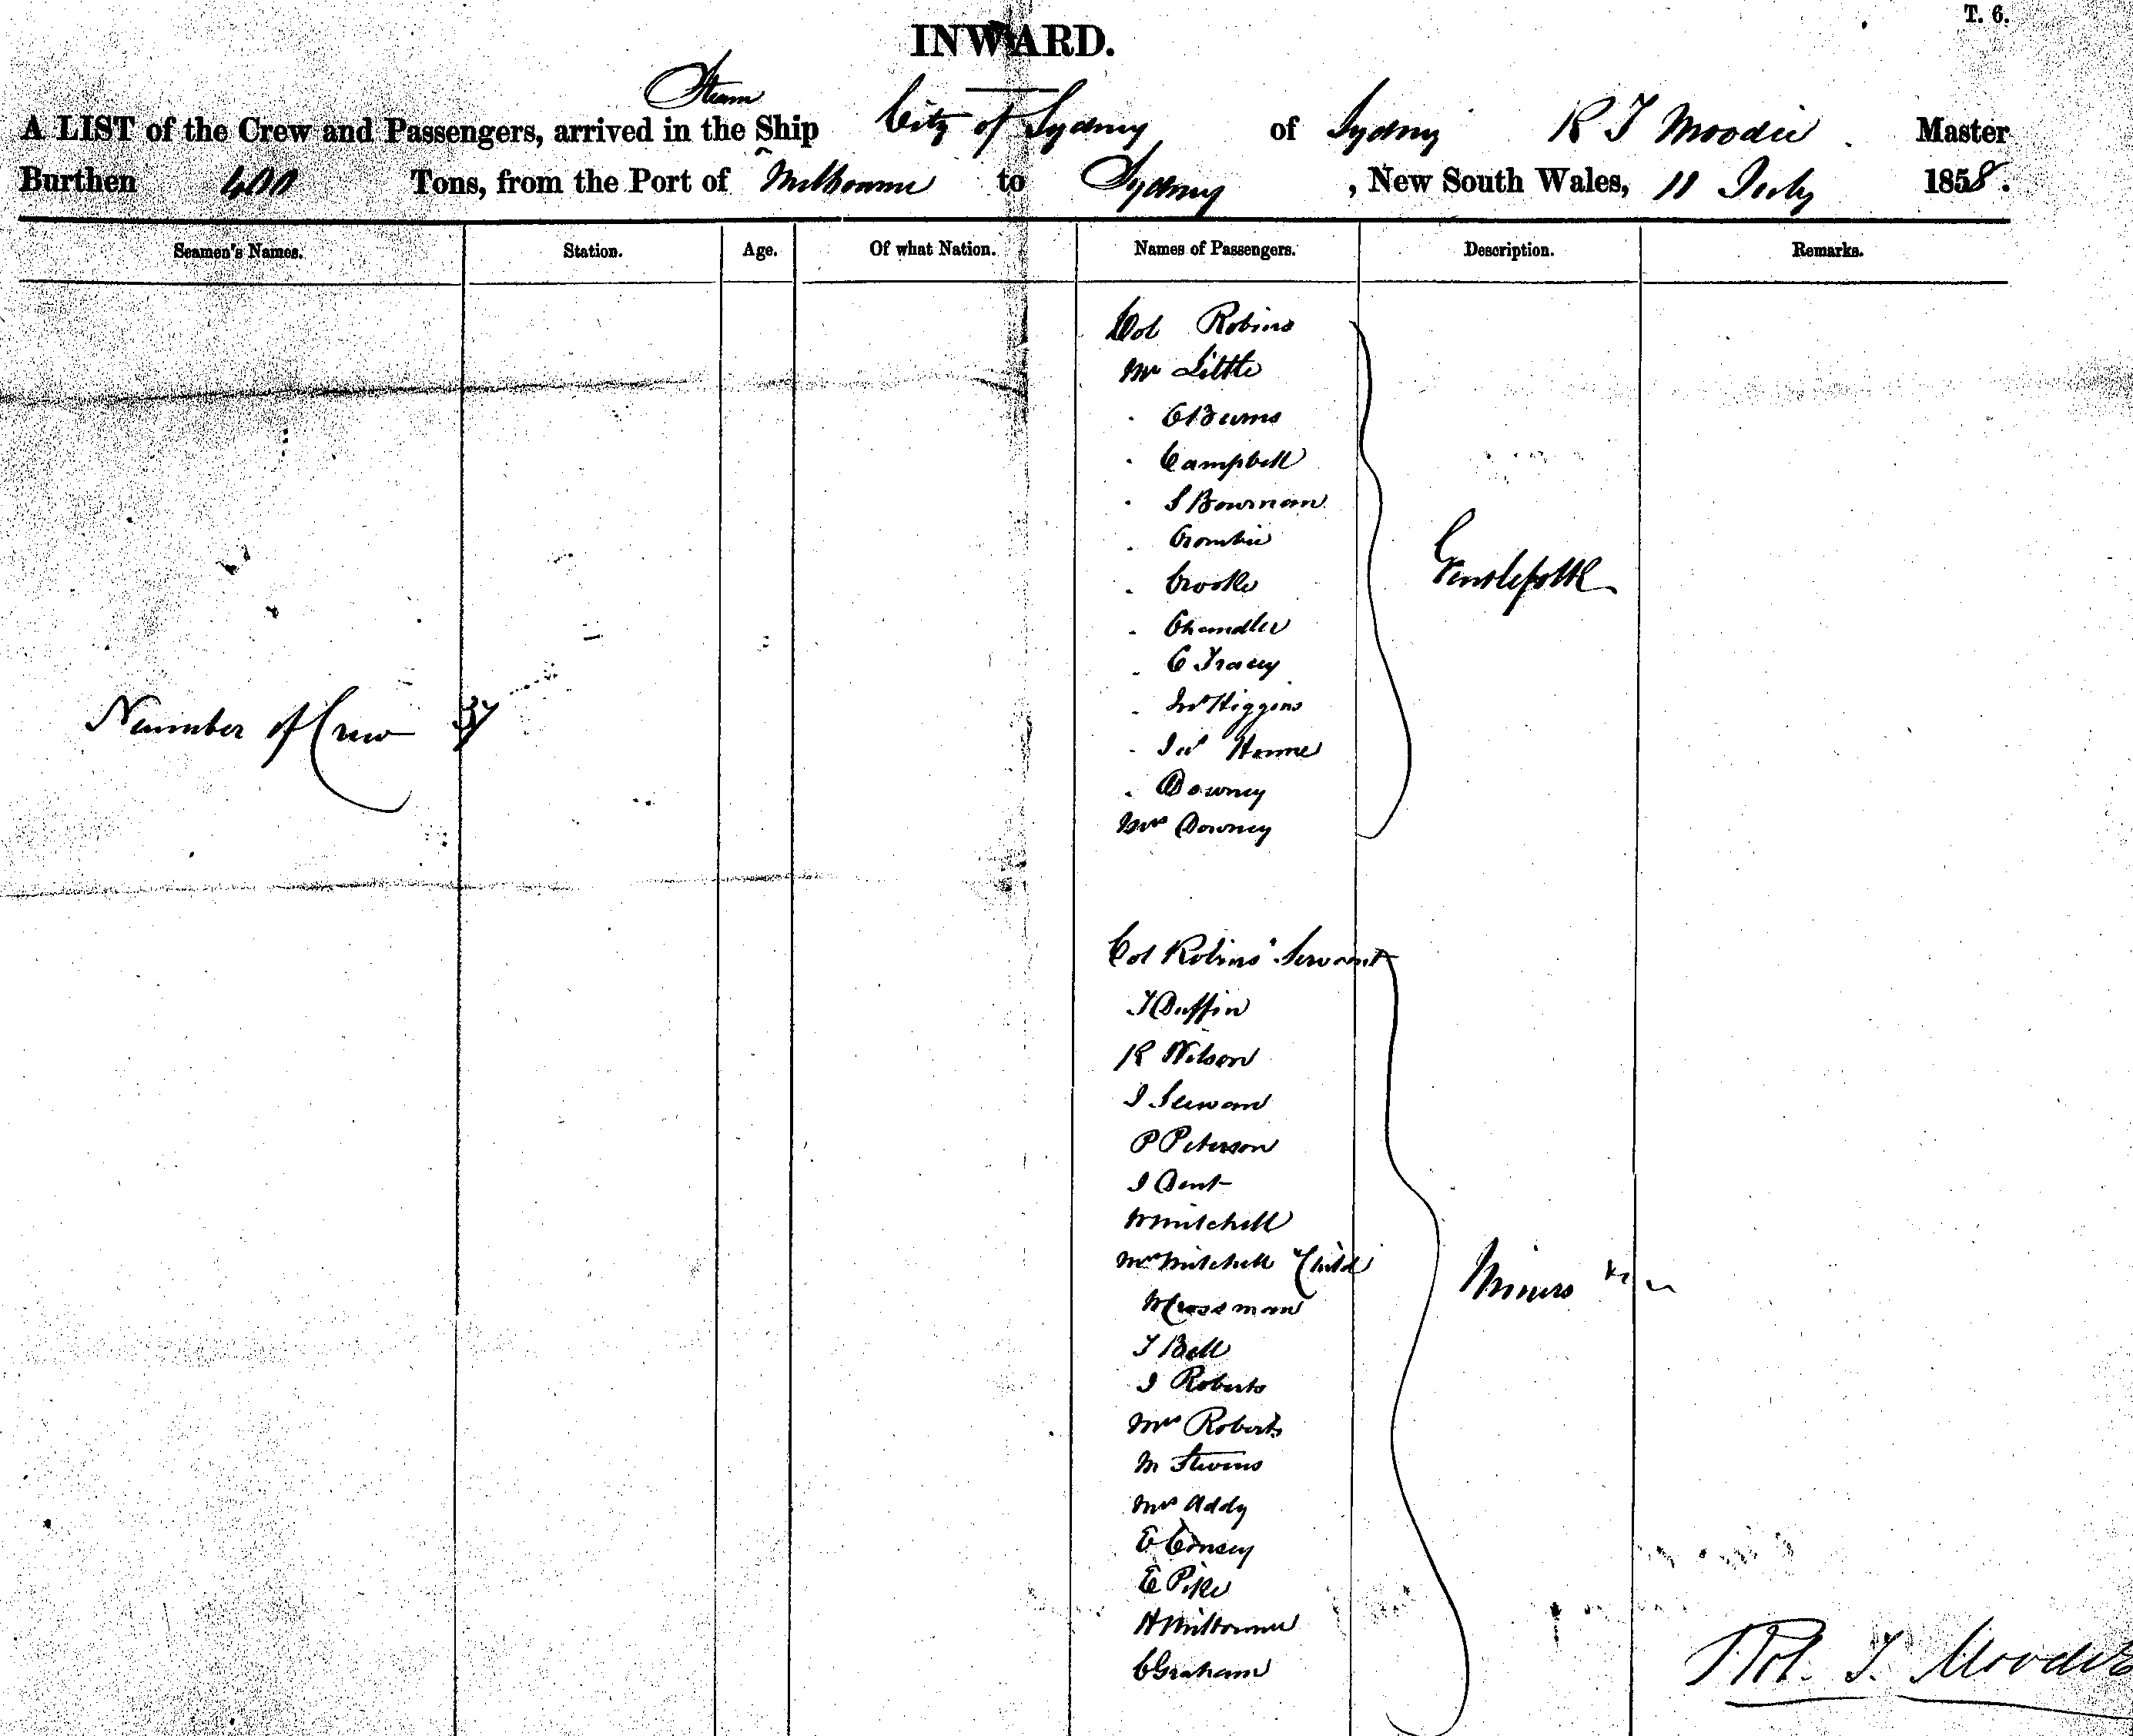 T. 6.
INWARD.
Steam
A LIST of the Crew and Passengers, arrived in the Ship City of Sydney of Sydney R T Moodie Master
Burthen 400 Tons, from the Port of Melbourne to Sydney, New South Wales, 11 July 1858.
Seamen's Names. Station. Age. Of what Nation. Names of Passengers. Description. Remarks.
Col Robins
Mr Little
" C Burns
" Campbell
" S Bowman
" Crombie
" Crooke
Gentlefolk
" Chandler
" C Tracey
" Higgins
Number of Crew 37
" Horne
" Downey
Mrs Downey
Col Robins' Servant
T Duffin
R Wilson
J
P Peterson
J Dent
W Mitchell
Mrs Mitchell & Child
Miners
W Crossman
T Bell
J Roberts
Mrs Roberts
M Stevens
Mrs Addy
E
E Pike
H
C Graham
Rot. T. Moodie